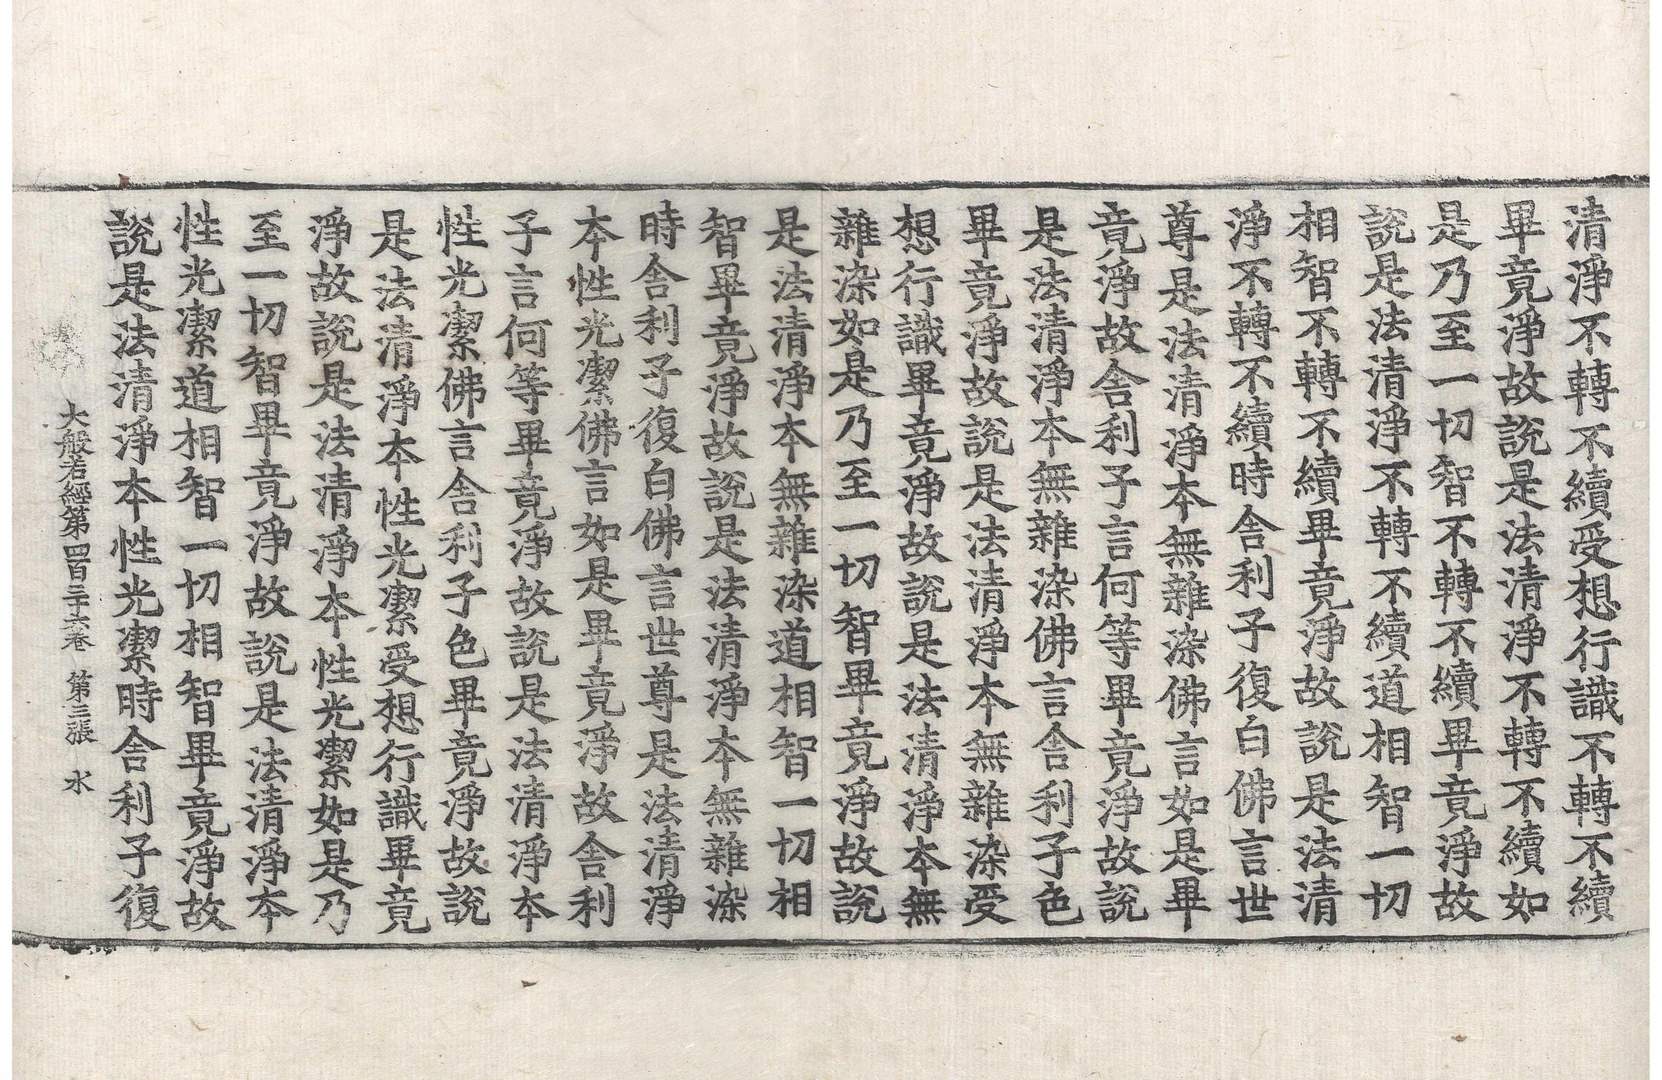 清淨不轉不續受想行識不轉不續
畢竟淨故說是法清淨不轉不續如
是乃至一切智不轉不續畢竟淨故
說是法清淨不轉不續道相智一切
相智不轉不續畢竟淨故說是法清
淨不轉不續時舍利子復白佛言世
尊是法清淨本無雜染佛言如是畢
竟淨故舍利子言何等畢竟淨故說
是法清淨本無雜染佛言舍利子色
畢竟淨故說是法清淨本無雜染受
想行識畢竟淨故說是法清淨本無
雜染如是乃至一切智畢竟淨故說
是法清淨本無雜染道相智一切相
智畢竟淨故說是法清淨本無雜染
時舍利子復白佛言世尊是法清淨
本性光潔佛言如是畢竟淨故舍利
子言何等畢竟淨故說是法清淨本
性光潔佛言舍利子色畢竟淨故說
是法清淨本性光潔受想行識畢竟
淨故說是法清淨本性光潔如是乃
至一切智畢竟淨故說是法清淨本
性光潔道相智一切相智畢竟淨故
說是法清淨本性光潔時舍利子復
大般若經第四百三十六卷 第三張 水